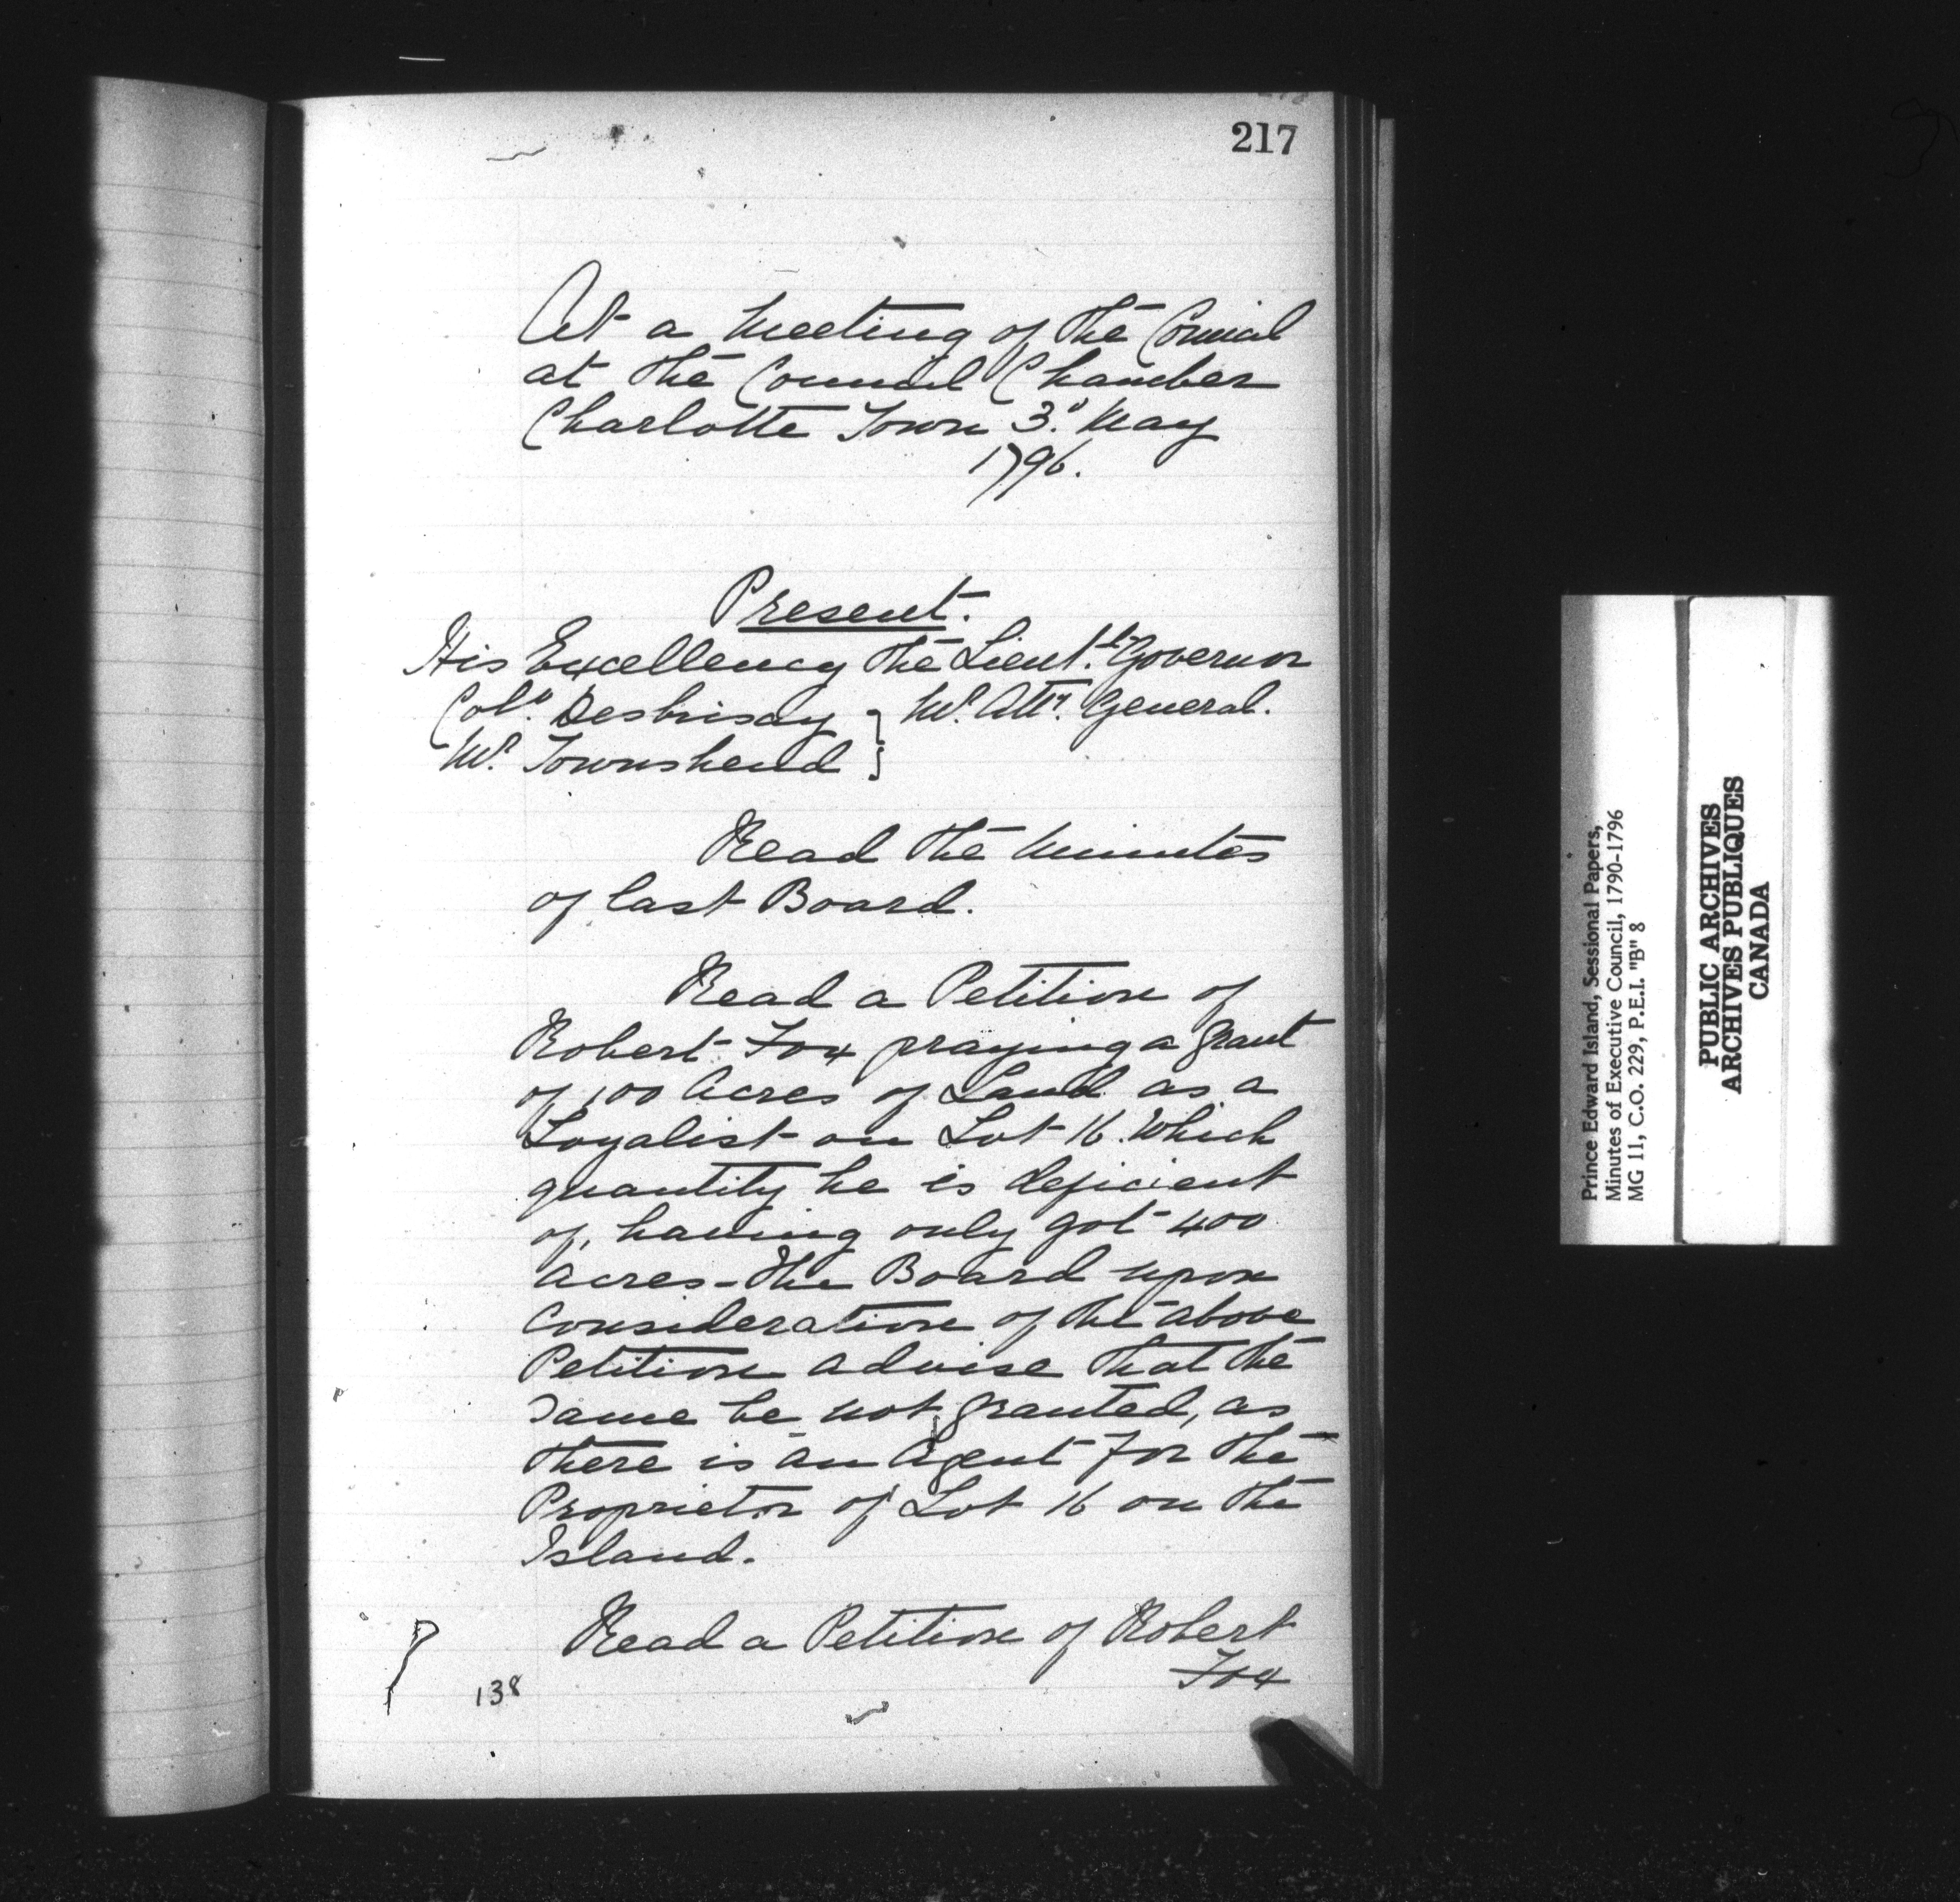 217
At a Meeting of the Council
at the Council Chamber
Charlotte Town 3d. May
1796.
Present.
His Excellency the Lieut.t Governor
Coll. Desbrisay } Mr. Atty. General.
Mr. Townshend }
Read the Minutes
of last Board.
Read a Petition of
Robert Fox praying a grant
of 100 Acres of Land as a
Loyalist on Lot 16. Which
quantity he is deficient
of, having only got 400
Acres - The Board upon
Consideration of the above
Petition advise that the
Same be not granted, as
there is an Agent for the
Proprietor of Lot 16 on the
Island.
Read a Petition of Robert
Fox
138
Prince Edward Island, Sessional Papers,
Minutes of Executive Council, 1790-1796
MG 11, C.O. 229, P.E.I. "B" 8
PUBLIC ARCHIVES
ARCHIVES PUBLIQUES
CANADA